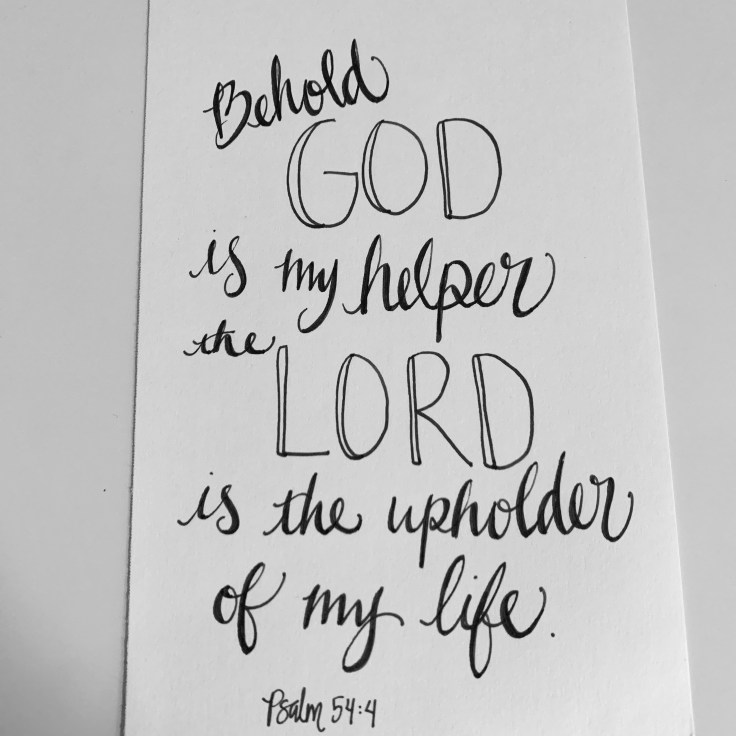 Behold
GOD
is my helper
the
LORD
is the upholder
of my life.
Psalm 54:4